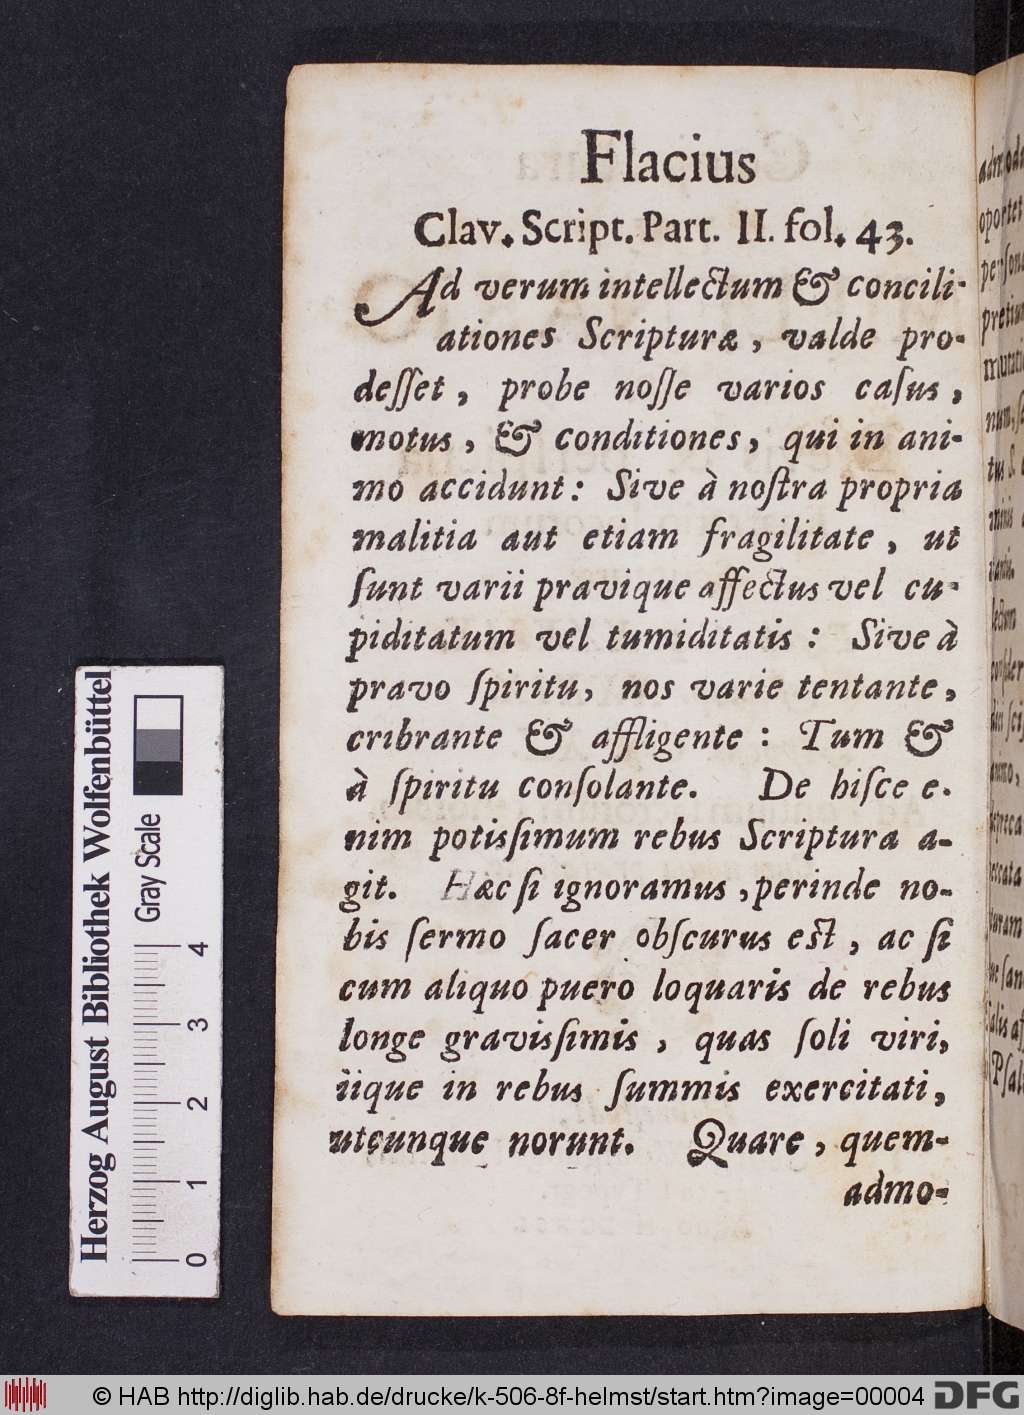 Flacius
Clav. Script. Part. II. fol. 43.
Ad verum intellectum & concili-
ationes Scripturæ, valde pro-
deſſet, probe noſſe varios caſus,
motus, & conditiones, qui in ani-
mo accidunt: Sive à noſtra propria
malitia aut etiam fragilitate, ut
ſunt varii pravique affectus vel cu-
piditatum vel tumiditatis: Sive à
pravo ſpiritu, nos varie tentante,
cribrante & affligente: Tum &
à ſpiritu conſolante. De hiſce e-
nim potisſimum rebus Scriptura a-
git. Hæc ſi ignoramus, perinde no-
bis ſermo ſacer obſcurus eſt, ac ſi
cum aliquo puero loquaris de rebus
longe gravisſimis, quas ſoli viri,
iique in rebus ſummis exercitati,
utcunque norunt. Quare, quem-
admo-
Herzog August Bibliothek Wolfenbüttel
Gray Scale
0 1 2 3 4
© HAB http://diglib.hab.de/drucke/k-506-8f-helmst/start.htm?image=00004
DFG